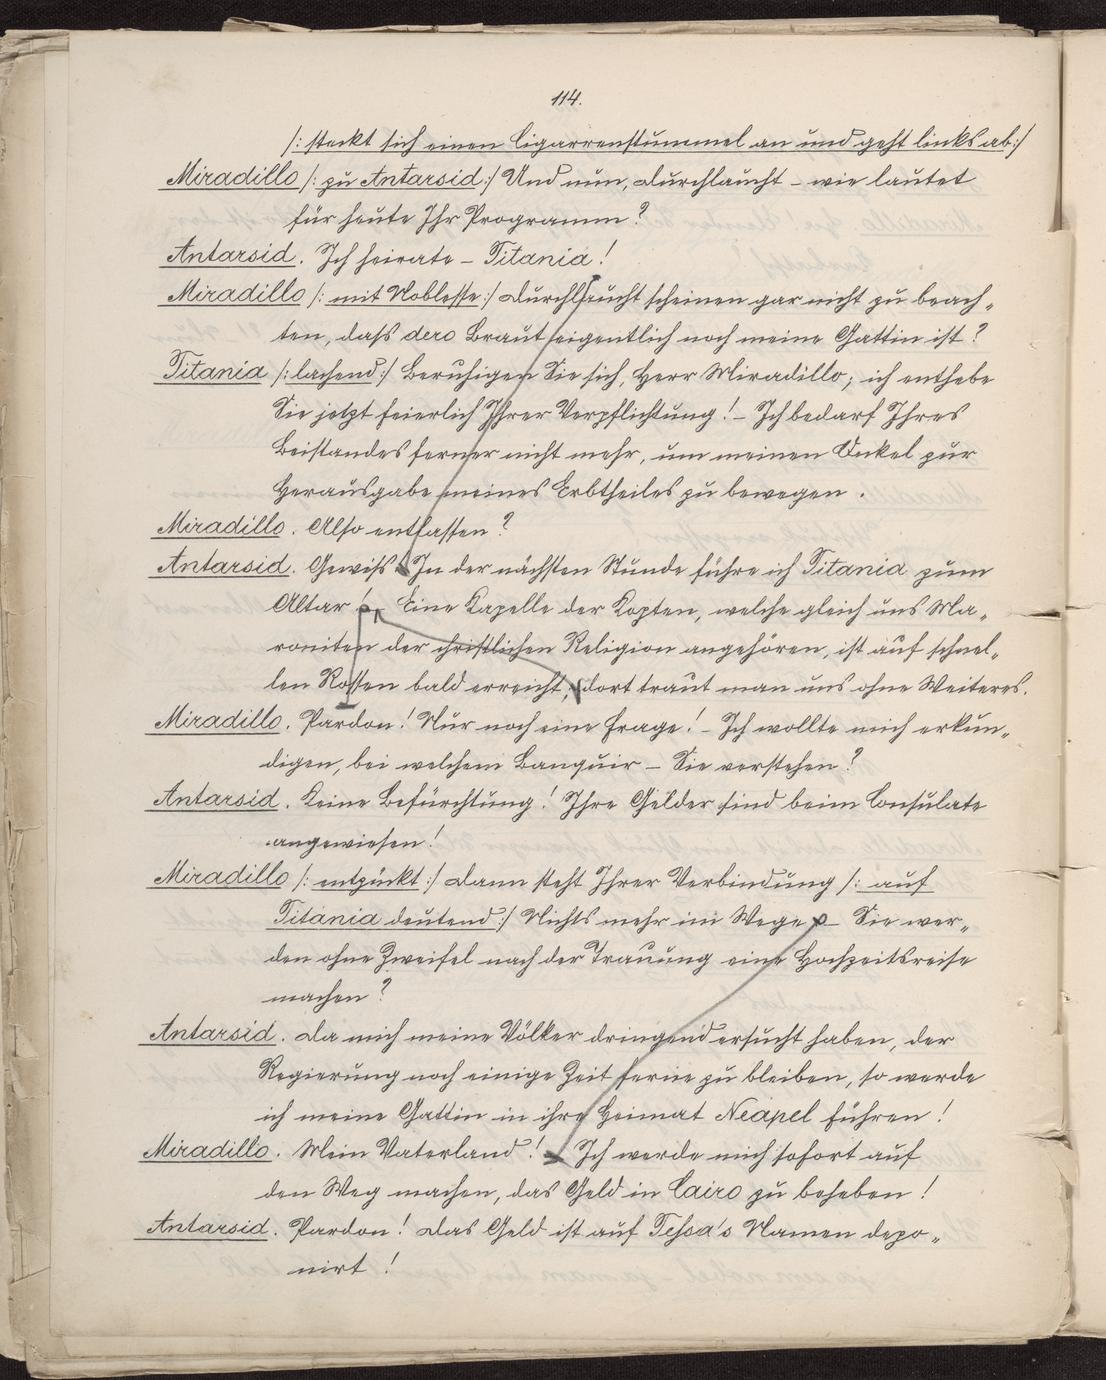 114.
/: steckt sich einen Cigarrenstummel an und geht links ab :/
Miradillo /: zu Antarsid :/ Und nun, Durchlaucht – wie lautet
für heute Ihr Programm?
Antarsid. Ich heirate – Titania!
Miradillo /: mit Noblesse :/ Durchlaucht scheinen gar nicht zu beach„
ten, daß dero Braut eigentlich noch meine Gattin ist?
Titania /: lachend :/ Beruhigen Sie sich, Herr Miradillo; ich enthebe
Sie jetzt feierlich Ihrer Verpflichtung! – Ich bedarf Ihres
Beistandes ferner nicht mehr, um meinen Onkel zur
Herausgabe meines Erbtheiles zu bewegen.
Miradillo. Also entlassen?
Antarsid. Gewiß In der nächsten Stunde führe ich Titania zum
Altar! Eine Kapelle der Kopten, welche gleich uns Ma„
roniten der christlichen Religion angehören, ist auf schnel„
len Rossen bald erreicht, dort traut man uns ohne Weiteres.
Miradillo. Pardon! Nur noch eine Frage! – Ich wollte mich erkun„
digen, bei welchem Banquir – Sie verstehen?
Antarsid. Keine Befürchtung! Ihre Gelder sind beim Consulate
angewiesen!
Miradillo /: entzückt :/ Dann steht Ihrer Verbindung /: auf
Titania deutend :/ Nichts mehr im Wege – Sie wer„
den ohne Zweifel nach der Trauung eine Hochzeitsreise
machen?
Antarsid. Da mich meine Völker dringend ersucht haben, der
Regierung noch einige Zeit ferne zu bleiben, so werde
ich meine Gattin in ihre Heimat Neapel führen!
Miradillo. Mein Vaterland! – Ich werde mich sofort auf
den Weg machen, das Geld in Cairo zu beheben!
Antarsid. Pardon! Das Geld ist auf Tessa's Namen depo„
nirt!